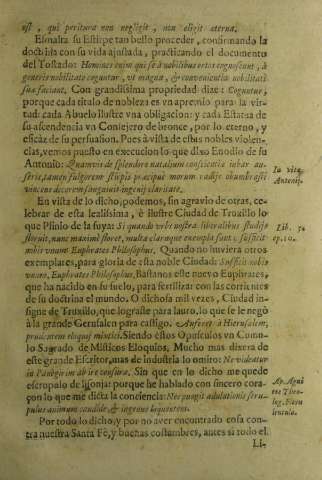 est, qui peritura non negligit, non eligit æterna.
Esmalta su Estirpe tan bello proceder, confirmando la
doctrina con su vida ajustada, practicando el documento
del Tostado: Homines enim qui se à nobilibus ortos cognoscunt, à
generis nobilitate coguntur, vt magna, & convenientia nobilitati
suæ faciant. Con grandissima propriedad dize: Coguntur,
porque cada titulo de nobleza es vn apremio para la vir-
tud: cada Abuelo Ilustre vna obligacion: y cada Estatua de
su ascendencia vn Consejero de bronce, por lo eterno, y
eficàz de su persuasion. Pues à vista de estas nobles violen-
cias, vemos puesto en execucion lo que dixo Enodio de su
Antonio: Quamvis de splendore natalium conscientiæ iubar au-
In vita
Antonij.
vincens decorem sanguinis ingenij claritate.
En vista de lo dicho, podemos, sin agravio de otras, ce-
lebrar de esta lealissima, è ilustre Ciudad de Truxillo lo
que Plinio de la suya: Si quando vrbs nostra liberalibus studijs
Lib. 1.
ep. 10.
floruit, nunc maximè floret, multa claraque exempla sunt: sufficit
nobis vnum Euphrates Philosophus. Quando no huviera otros
exemplares, para gloria de esta noble Ciudad: Sufficit nobis
vnum, Euphrates Philosophus, Bastanos este nuevo Euphrates,
que ha nacido en su suelo, para fertilizar con las corrientes
de su doctrina el mundo. O dichosa mil vezes, Ciudad in-
signe de Truxillo, que lograste para lauro, lo que se le negò
à la grande Gerusalen para castigo. Auferet à Hierusalem,
prudentem eloquij mistici. Siendo estos Opusculos vn Cumu-
lo Sagrado de Misticos Eloquios. Mucho mas dixera de
este grande Escritor, mas de industria lo omito: Ne videatur
in Panegirim abire censura. Sin que en lo dicho me quede
escropulo de lisonja: porque he hablado con sincero cora-
çon lo que me dicta la conciencia: Nec pungit adulationis scru-
pulus animum candidè, & ingenuè loquentem.
Por todo lo dicho, y por no aver encontrado cosa con-
tra nuestra Santa Fè, y buenas costumbres, antes si todo el
Li-